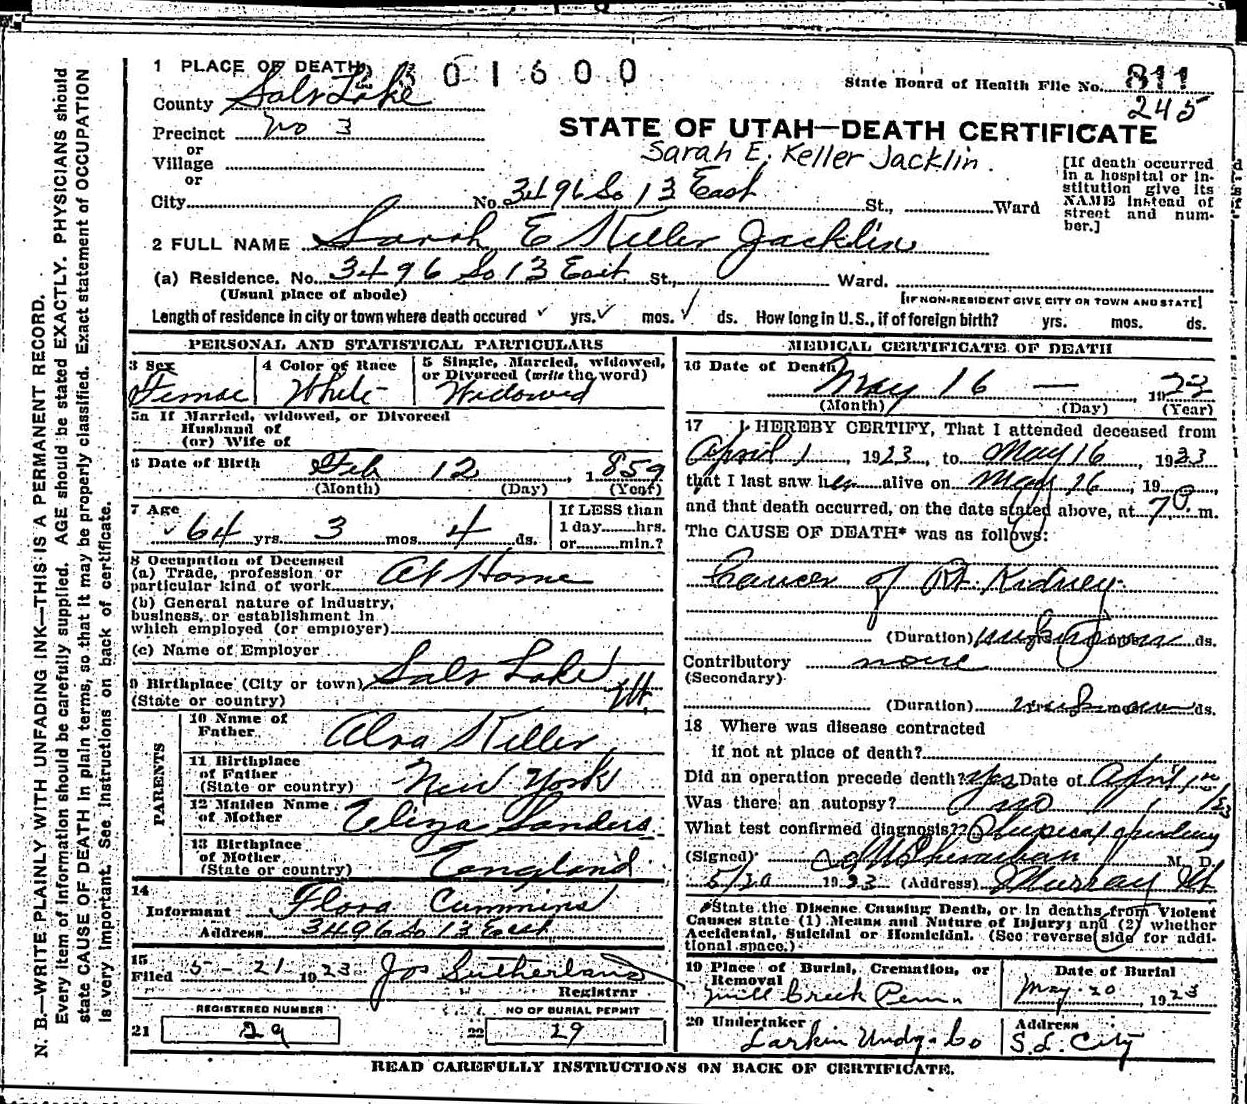 N. B.—WRITE PLAINLY WITH UNFADING INK—THIS IS A PERMANENT RECORD.
Every item of information should be carefully supplied. AGE should be stated EXACTLY. PHYSICIANS should
state CAUSE OF DEATH in plain terms, so that it may be properly classified. Exact statement of OCCUPATION
is very important. See instructions on back of certificate.
1 PLACE OF DEATH 01600
State Board of Health File No. 811
245
County Salt Lake
Precinct No 3
or
Village
or
STATE OF UTAH—DEATH CERTIFICATE
Sarah E. Keller Jacklin.
[If death occurred
in a hospital or in-
stitution give its
NAME instead of
street and num-
ber.]
City No. 3496 So 13 East St., Ward
2 FULL NAME Sarah E Keller Jacklin
(a) Residence. No. 3496 So 13 East St., Ward.
(Usual place of abode) [IF NON-RESIDENT GIVE CITY OR TOWN AND STATE]
Length of residence in city or town where death occured yrs. mos. ds. How long in U.S., if of foreign birth? yrs. mos. ds.
PERSONAL AND STATISTICAL PARTICULARS
3 Sex Female
4 Color or Race White
5 Single, Married, widowed,
or Divorced (write the word)
Widowed
5a If Married, widowed, or Divorced
Husband of
(or) Wife of
6 Date of Birth Feb 12, 1859
(Month) (Day) (Year)
7 Age 64 yrs. 3 mos. 4 ds.
If LESS than
1 day hrs.
or min.?
8 Occupation of Deceased
(a) Trade, profession or
particular kind of work At Home
(b) General nature of industry,
business, or establishment in
which employed (or employer)
(c) Name of Employer
9 Birthplace (City or town) Salt Lake
(State or country) Ut.
PARENTS
10 Name of
Father Alva Keller
11 Birthplace
of Father
(State or country) New York
12 Maiden Name
of Mother Eliza Sanders
13 Birthplace
of Mother
(State or country) England
14
Informant Flora Cummins
Address 3496 So 13 East
15
Filed 5-21 1923 Jos Sutherland
Registrar
REGISTERED NUMBER
21 29
NO OF BURIAL PERMIT
22 29
MEDICAL CERTIFICATE OF DEATH
16 Date of Death May 16 — , 1923
(Month) (Day) (Year)
17 I HEREBY CERTIFY, That I attended deceased from
April 1, 1923, to May 16, 1923
that I last saw her alive on May 16, 19
and that death occurred, on the date stated above, at 7 P. m.
The CAUSE OF DEATH* was as follows:
Cancer of Rt. Kidney
(Duration) ds.
Contributory none
(Secondary)
(Duration) ds.
18 Where was disease contracted
if not at place of death?
Did an operation precede death? Yes Date of April
Was there an autopsy? no
What test confirmed diagnosis?
(Signed) M. D.
5/20 1923 (Address) Murray Ut
*State the Disease Causing Death, or in deaths from Violent
Causes state (1) Means and Nature of Injury; and (2) whether
Accidental, Suicidal or Homicidal. (See reverse side for addi-
tional space.)
19 Place of Burial, Cremation, or
Removal
Mill Creek
Date of Burial
May 20 1923
20 Undertaker
Larkin Undg. Co
Address
S. L. City
READ CAREFULLY INSTRUCTIONS ON BACK OF CERTIFICATE.